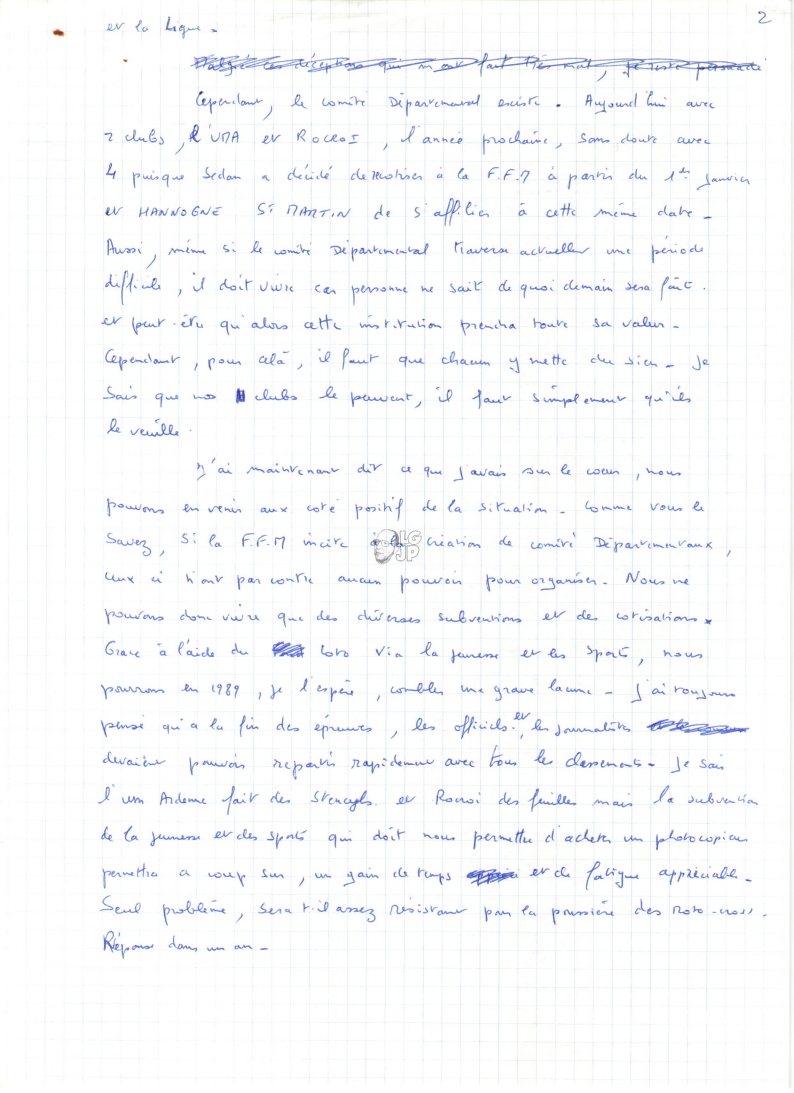 2
et la Ligue -
Malgré ces déceptions qui m'ont fait très mal, je reste persuadé
Cependant, le comité Départemental existe. Aujourd'hui avec
2 clubs, L'UMA et ROCROI, l'année prochaine, sans doute avec
4 puisque Sedan a décidé de recotiser à la F.F.M à partir du 1er Janvier
et HANNOGNE St MARTIN de s'affilier à cette même date -
Aussi, même si le comité Départemental traverse actuellemt une période
difficile, il doit vivre car personne ne sait de quoi demain sera fait.
et peut-être qu'alors cette institution prendra toute sa valeur -
Cependant, pour celà, il faut que chacun y mette du sien - Je
sais que nos clubs le peuvent, il faut simplement qu'ils
le veuille.
J'ai maintenant dit ce que j'avais sur le coeur, nous
pouvons en venir aux coté positif de la situation - Comme vous le
savez, si la F.F.M incite à la création de comité Départementaux,
LGJP
ceux ci n'ont par contre aucun pouvoir pour organiser - Nous ne
pouvons donc vivre que des diverses subventions et des cotisations.
Grace à l'aide du Loto via la jeunesse et les sports, nous
pourrons en 1989, je l'espère, combler une grave lacune - J'ai toujours
pensé qu'a la fin des épreuves, les officiels et les journalistes
devaient pouvoir repartir rapidement avec tous les classements - Je sais
l'um Ardenne fait des Stencyls et Rocroi des feuilles mais la subvention
de la jeunesse et des sports qui doit nous permettre d'acheter un photocopieur
permettra a coup sur, un gain de temps et de fatigue appréciable -
Seul problème, sera t-il assez résistant pour la poussière des Moto-cross.
Réponse dans un an -